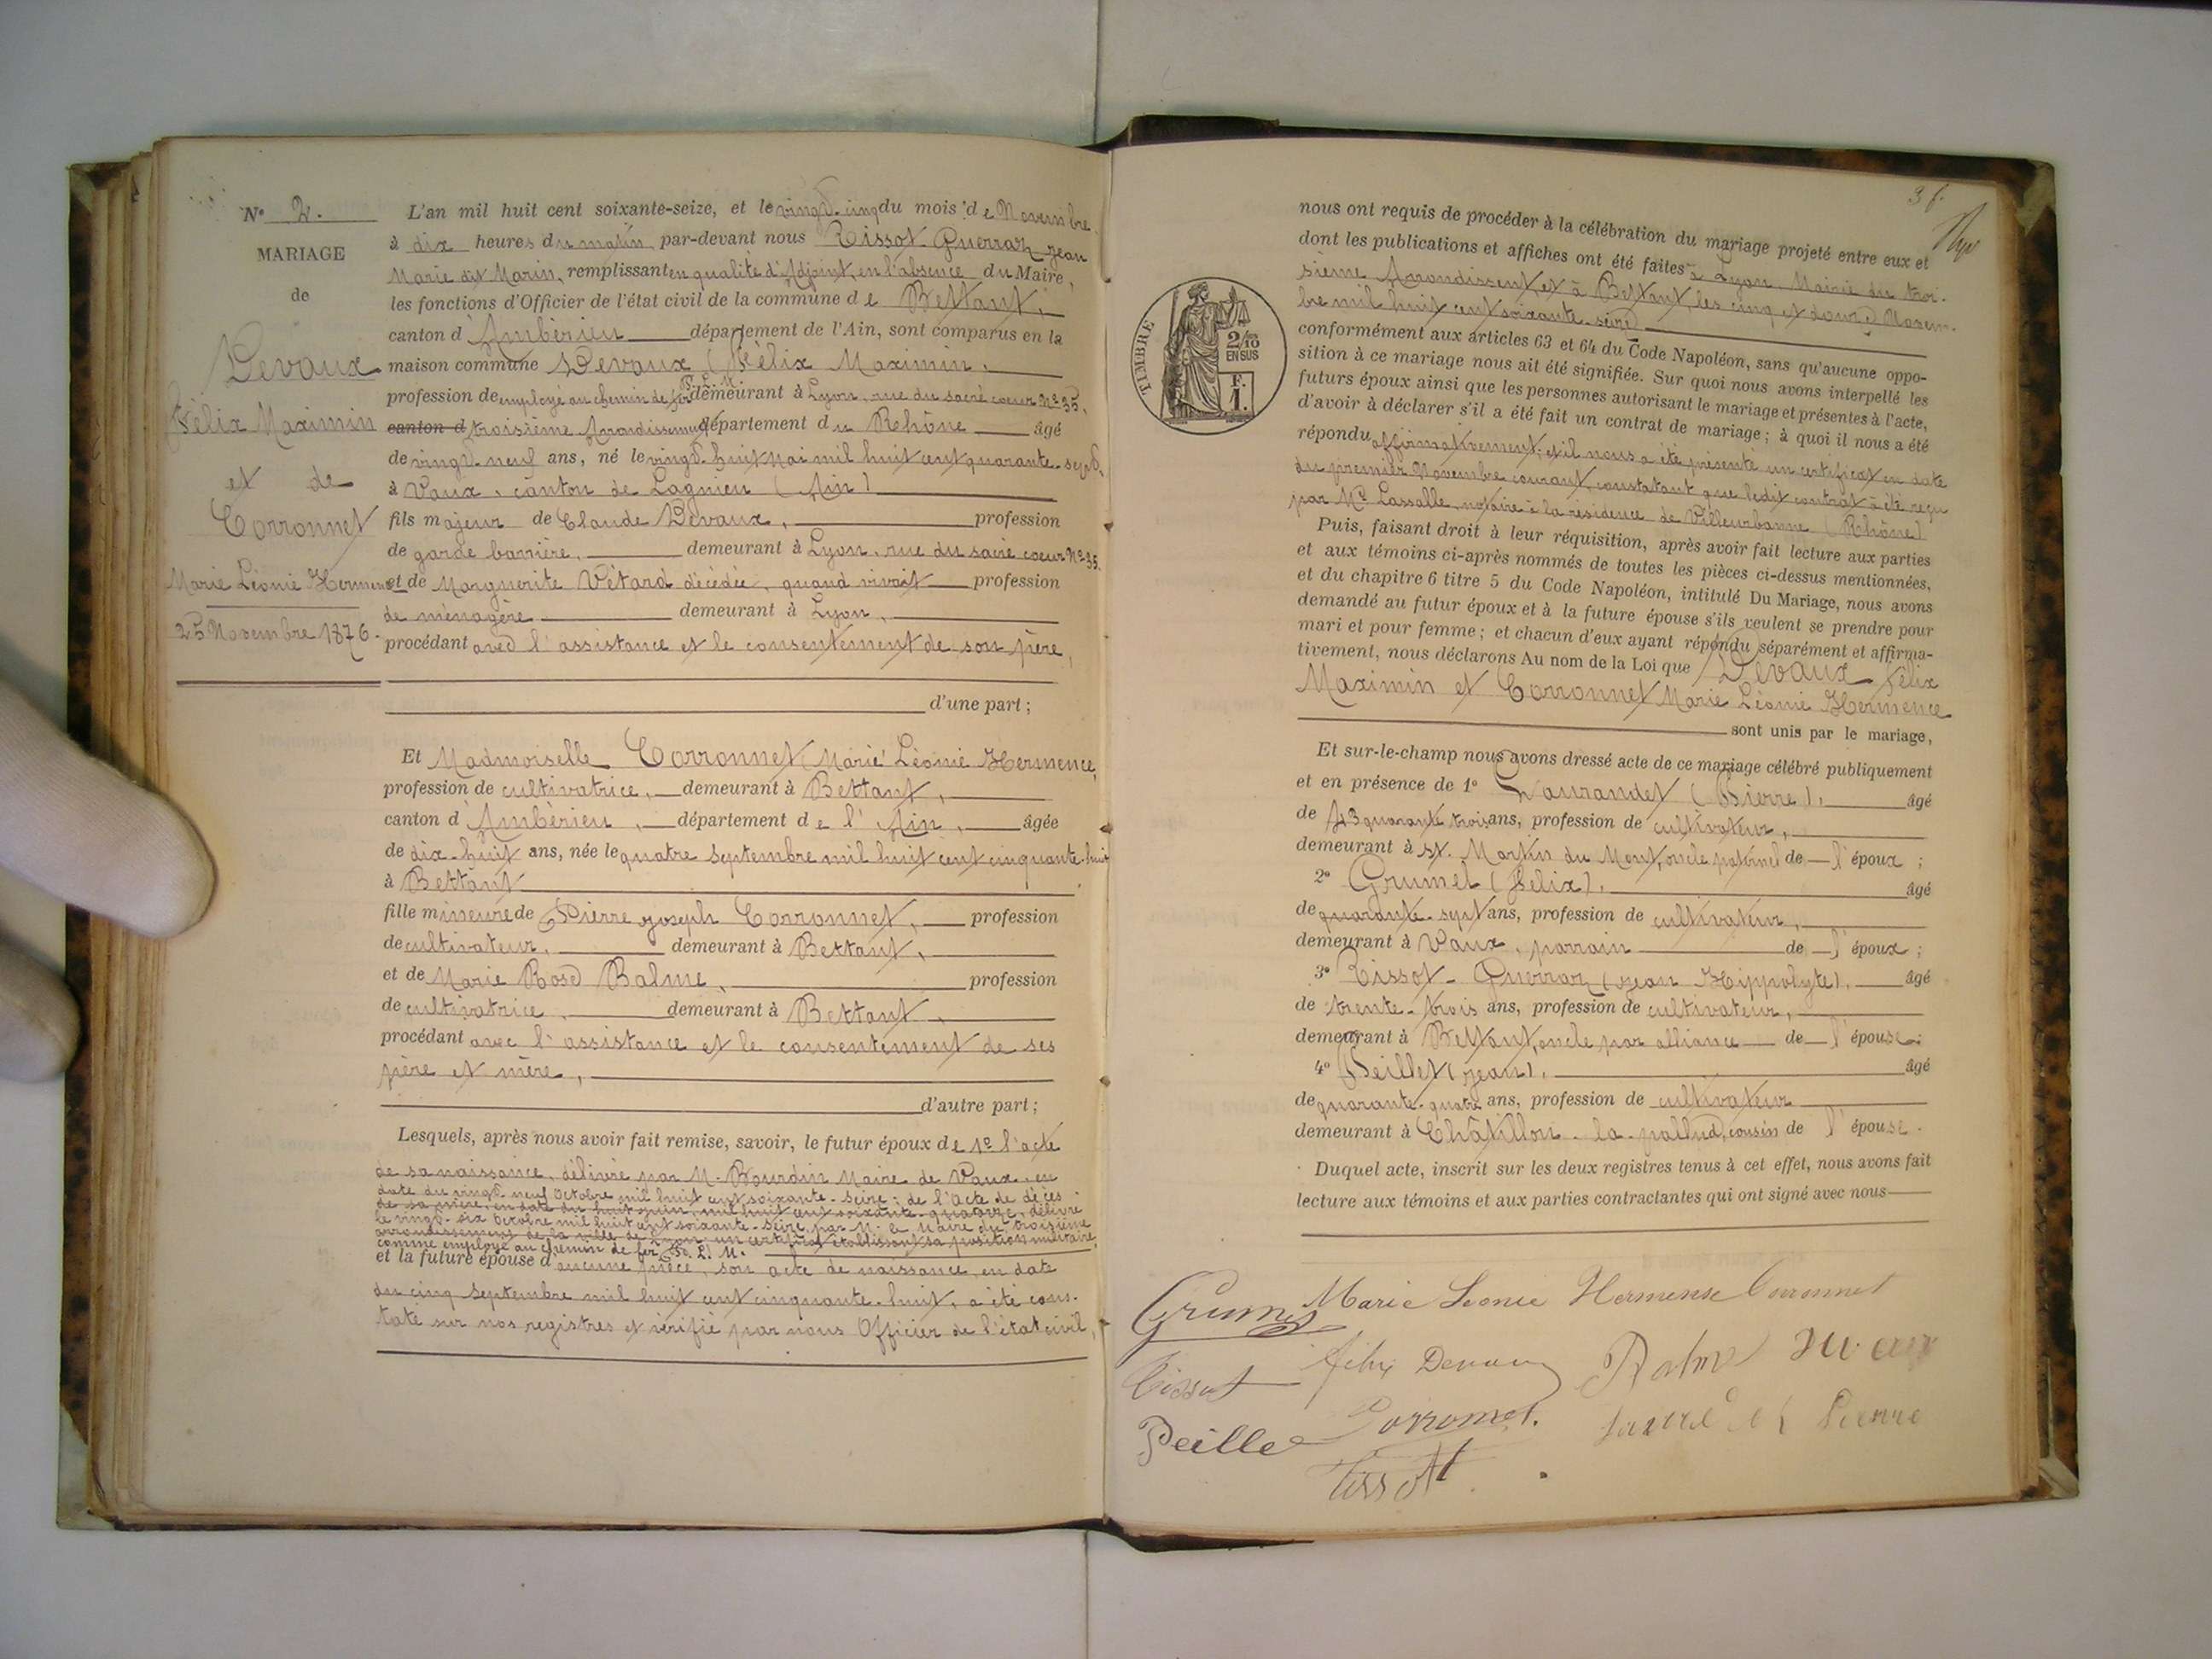 N° 2.
MARIAGE
de
Devaux
Félix Maximin
et de
Corronnet
Marie Léonie Hermence
25 Novembre 1876.
L'an mil huit cent soixante-seize, et le vingt-cinq du mois de Novembre
à dix heures du matin par-devant nous Tissot-Guerraz Jean
Marie dit Marin, remplissant en qualité d'Adjoint, en l'absence du Maire,
les fonctions d'Officier de l'état civil de la commune de Bettant,
canton d'Ambérieu département de l'Ain, sont comparus en la
maison commune Devaux (Félix Maximin.
profession de employé au chemin de fer P. L. M. demeurant à Lyon, rue du sacré coeur N° 35,
canton d troisième Arrondissement département du Rhône âgé
de vingt-neuf ans, né le vingt-huit Mai mil huit cent quarante-sept
à Vaux, canton de Lagnieu (Ain)
fils majeur de Claude Devaux, profession
de garde barrière, demeurant à Lyon, rue du sacré coeur N° 35.
et de Marguerite Vétard décédée, quand vivait profession
de ménagère demeurant à Lyon,
procédant avec l'assistance et le consentement de son père,
d'une part;
Et Madmoiselle Corronnet (Marie Léonie Hermence,
profession de cultivatrice, demeurant à Bettant,
canton d'Ambérieu, département de l'Ain, âgée
de dix-huit ans, née le quatre Septembre mil huit cent cinquante-huit
à Bettant
fille mineure de Pierre Joseph Corronnet, profession
de cultivateur, demeurant à Bettant,
et de Marie Rose Balme, profession
de cultivatrice, demeurant à Bettant,
procédant avec l'assistance et le consentement de ses
père et mère,
d'autre part;
Lesquels, après nous avoir fait remise, savoir, le futur époux de 1° l'acte
de sa naissance, délivré par M. Bourdin Maire de Vaux, en
date du vingt-neuf Octobre mil huit cent soixante-seize; de l'acte de décès
de sa mère, en date du huit Juin, mil huit cent soixante-quatorze, délivré
le vingt-six Octobre mil huit cent soixante-seize, par M. le Maire du troisième
arrondissement de la ville de Lyon, un certificat établissant sa position militaire,
comme employé au chemin de fer P. L. M.
et la future épouse d'aucune pièce, son acte de naissance, en date
du cinq Septembre mil huit cent cinquante-huit, a été cons-
taté sur nos registres et vérifié par nous Officier de l'état civil,
36.
TIMBRE
2/10
EN SUS
F.
1.
nous ont requis de procéder à la célébration du mariage projeté entre eux et
dont les publications et affiches ont été faites à Lyon, Mairie du troi-
sième Arrondissent, et à Bettant, les cinq et douze Novem-
bre mil huit cent soixante-seize
conformément aux articles 63 et 64 du Code Napoléon, sans qu'aucune oppo-
sition à ce mariage nous ait été signifiée. Sur quoi nous avons interpellé les
futurs époux ainsi que les personnes autorisant le mariage et présentes à l'acte,
d'avoir à déclarer s'il a été fait un contrat de mariage; à quoi il nous a été
répondu affirmativement, et il nous a été présenté un certificat en date
du premier Novembre courant, constatant que ledit contrat a été reçu
par Me Lassalle, notaire à la résidence de Villeurbanne (Rhône)
Puis, faisant droit à leur réquisition, après avoir fait lecture aux parties
et aux témoins ci-après nommés de toutes les pièces ci-dessus mentionnées,
et du chapitre 6 titre 5 du Code Napoléon, intitulé Du Mariage, nous avons
demandé au futur époux et à la future épouse s'ils veulent se prendre pour
mari et pour femme; et chacun d'eux ayant répondu séparément et affirma-
tivement, nous déclarons Au nom de la Loi que Devaux Félix
Maximin et Corronnet Marie Léonie Hermence
sont unis par le mariage,
Et sur-le-champ nous avons dressé acte de ce mariage célébré publiquement
et en présence de 1° Laurandet (Pierre), âgé
de 43 quarante trois ans, profession de cultivateur,
demeurant à St. Martin du Mont, oncle paternel de l'époux;
2° Grumel (Félix), âgé
de quarante-sept ans, profession de cultivateur,
demeurant à Vaux, parrain de l'époux;
3° Tissot-Guerraz (Jean Hippolyte), âgé
de trente-trois ans, profession de cultivateur,
demeurant à Bettant, oncle par alliance de l'épouse;
4° Peillet (Jean), âgé
de quarante-quatre ans, profession de cultivateur
demeurant à Châtillon-la-pallud, cousin de l'épouse.
Duquel acte, inscrit sur les deux registres tenus à cet effet, nous avons fait
lecture aux témoins et aux parties contractantes qui ont signé avec nous
Marie Leonie Hermense Corronnet
Grumel
félix Devaux
Balme
Tissot
Corronnet.
Pierre
Peillet
Tissot